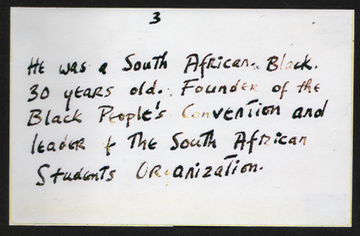 3
He was a South African. Black.
30 years old. Founder of the
Black People's Convention and
leader of The South African
Students Organization.